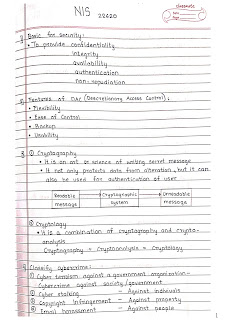 classmate
Date
Page
NIS
22620
Basic for security:
• To provide confidentiality
integrity
availability
authentication
non-repudiation
Features of DAC (Discretionary Access Control):
• Flexibility
• Ease of Control
• Backup
• Usability
① Cryptography
• It is an art & science of writing secret message
• It not only protects data from alteration, but it can
also be used for authentication of user
Readable message
Cryptographic system
Unreadable message
② Cryptology
• It is a combination of cryptography and crypto-
analysis
Cryptography + Cryptoanalysis = Cryptology
Classify cybercrime:
① Cyber terrorism against a government organization-
Cybercrime against society/government
② Cyber stalking - Against individuals
③ Copyright infringement - Against property
④ Email harassment - Against people